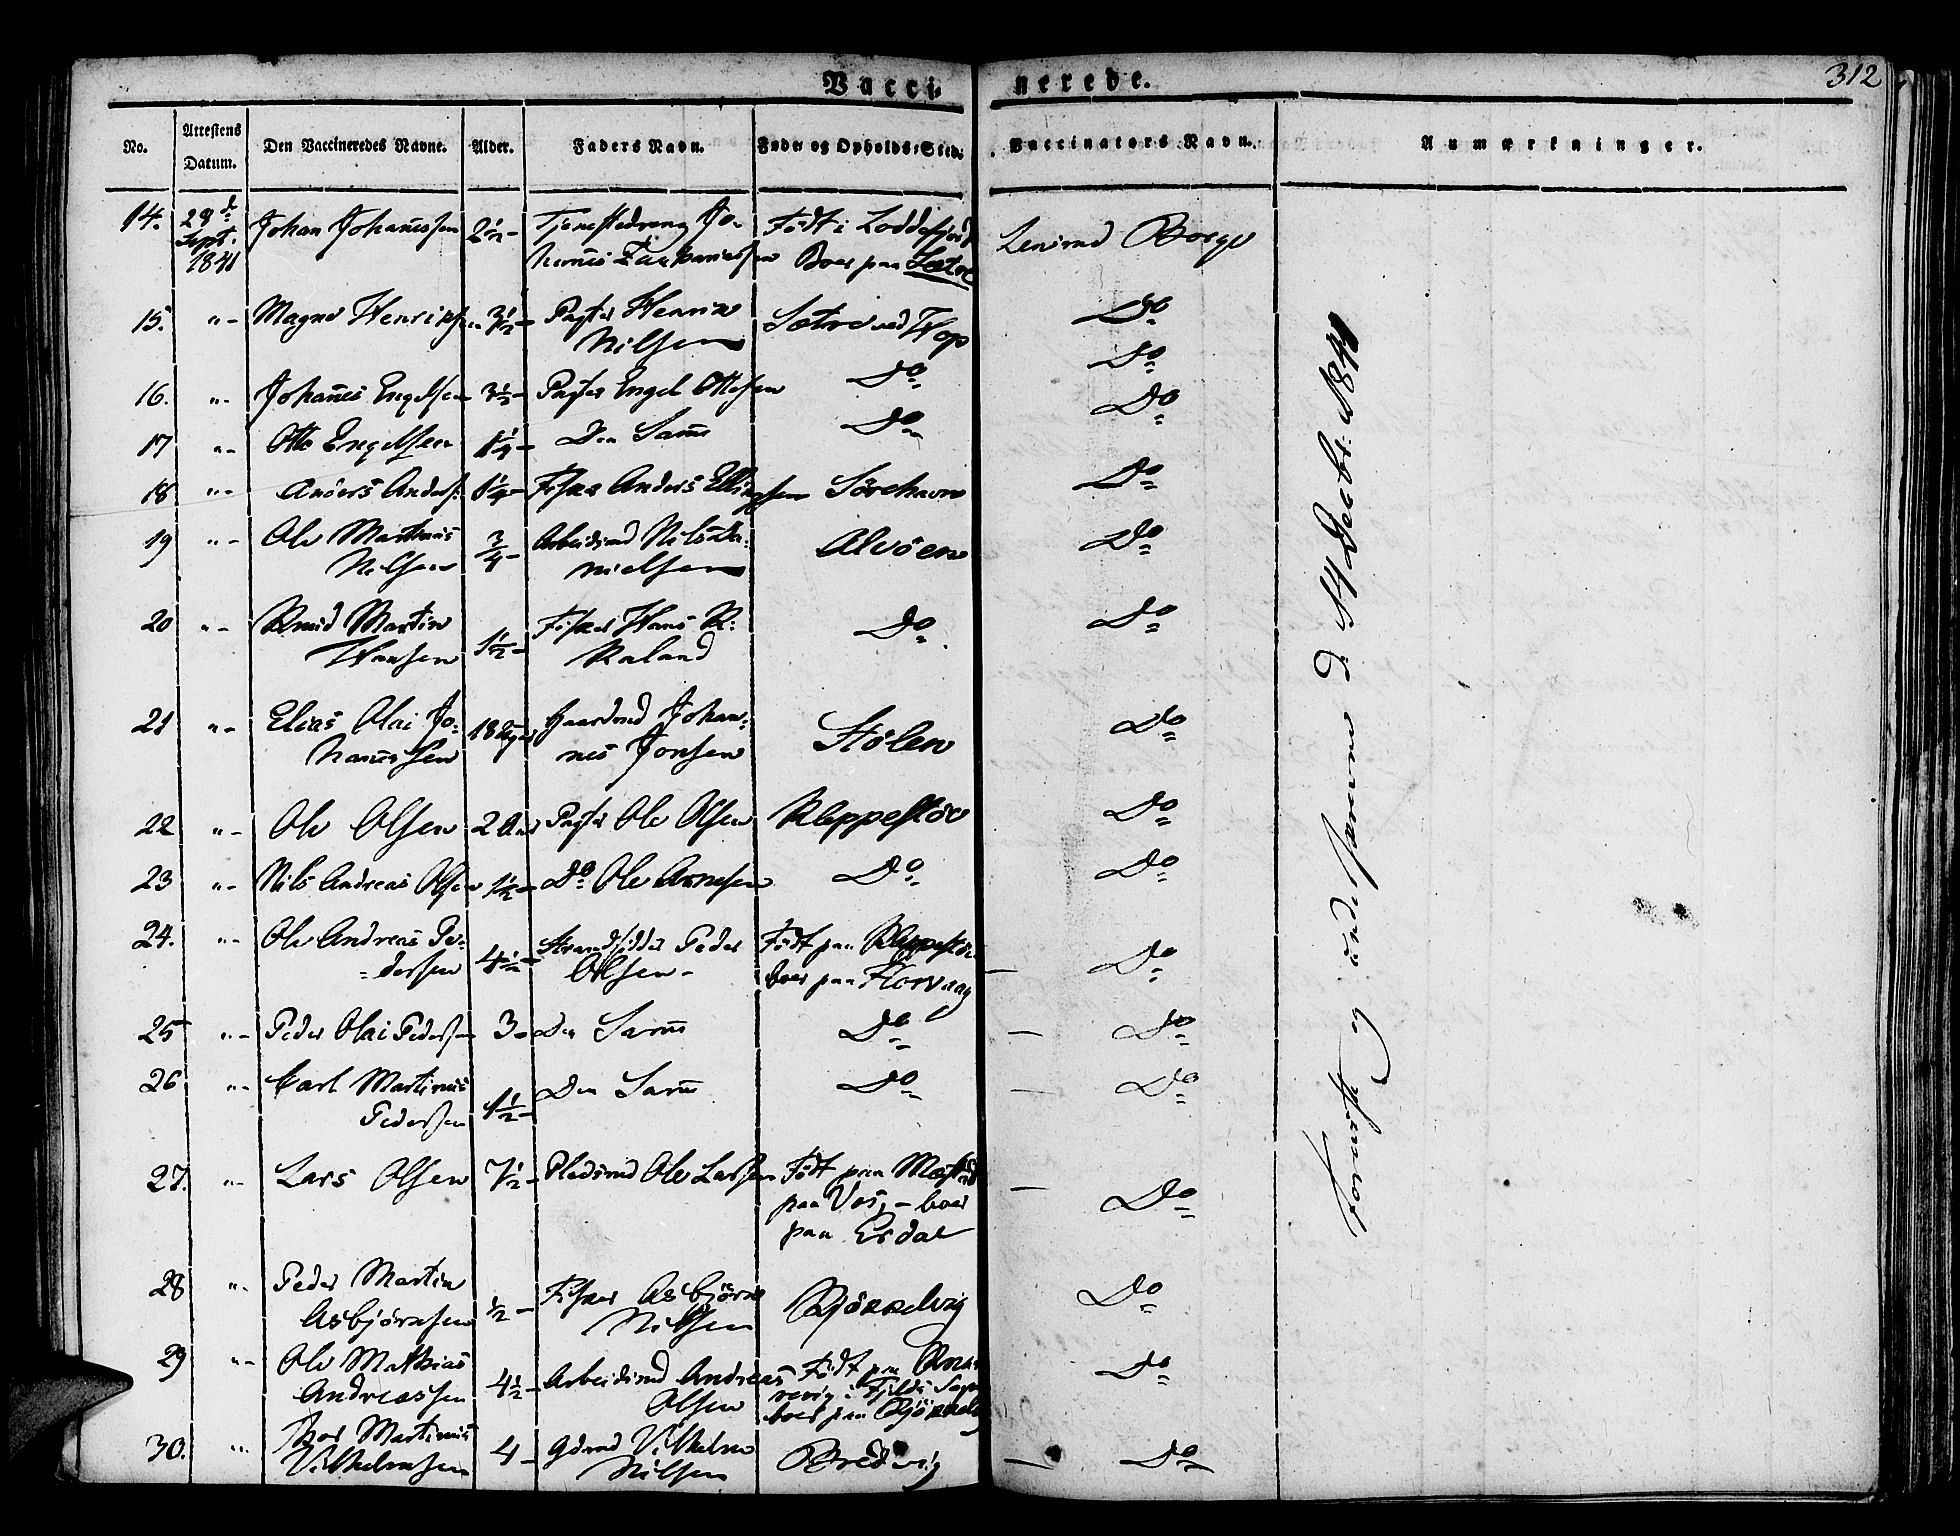 Vacci- nerede. 312
No. Attestens Datum. Den Vaccineredes Navne. Alder. Faders Navn. Føde- og Opholds-Sted. Vaccinators Navn. Anmærkninger.
14. 28 d. Sept. 1841 Johan Johannessen 2 1/2 - Tjenestedreng Jo-
hannes Født i Loddefjord
Boer paa Sætre Lensmd Borge
15. "- Magne Henriksen 3 1/2 - Pagter Henrik
Nilsen Sætre ved Hop Do
16. "- Johannes Engelsen 3 1/2 - Pagter Engel Ottesen Do Do
17 "- Otto Engelsen 1 1/4 - Den Samme Do Do
18 "- Anders Anders: 1 1/4 - Fisker Anders Ellingsen Sörehavn Do
19 "- Ole Martinus
Nilsen 3/4 - Arbeidsmd Nils Da-
nielsen Alvöen Do
20 "- Knud Martin
Hansen 1 1/2 - Fisker Hans K:
Raland Do Do
21 "- Elias Olai Jo-
hannessen 18 Uger Gaardmd Johan-
nes Jonsen Stölen Do
22 "- Ole Olsen 2 Aar Pagter Ole Olsen Kleppestöe Do
23 "- Nils Andreas Olsen 1 1/2 - Do Ole Arnesen Do Do
24. "- Ole Andreas Pe-
dersen 4 1/2 - Strandsidder Peder
Olsen - Født paa Kleppestöe
boer paa Florvaag Do
25 "- Peder Olai Pedersen 3 - Den Samme Do Do
26 "- Carl Martinus
Pedersen 1 1/2 - Den Samme Do Do
27. "- Lars Olsen 7 1/2 - Pladsmd Ole Larsen Født paa
paa Vos, - boer
paa Erdal Do
28 "- Peder Martin
Asbjørnsen 1/2 - Fisker Asbjørn
Nilsen Bjökkelvig Do
29 "- Ole Mathias
Andreassen 4 1/2 - Arbeidsmd Andreas
Olsen Født paa
i Fjelds Sogn
boer paa Do
30. "- Thor Martinus
Vilhelmsen 4 - Gdmd Vilhelm
Nilsen Bredvig Do
Foranste og undersøgte D. 14 Decbr. 1841